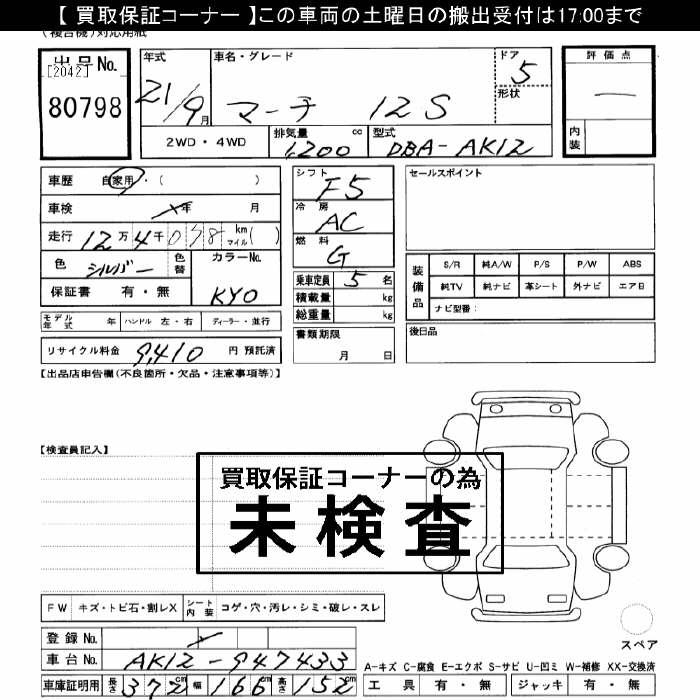 【 買取保証コーナー 】この車両の土曜日の搬出受付は17:00まで
(複合機)対応用紙
出品No.
[2042]
80798
年式
21/9月
車名・グレード
マーチ 12S
ドア
5
形状
評価点
—
内装
2WD・4WD
排気量 cc
1,200
型式
DBA-AK12
車歴 自家用・( )
車検 年 月
走行 12万4千038 km マイル( )
色 シルバー 色替
カラーNo.
KY0
保証書 有・無
シフト
F5
冷房
AC
燃料
G
乗車定員 5 名
積載量 kg
総重量 kg
書類期限
月 日
セールスポイント
装備品
S/R 純A/W P/S P/W ABS
純TV 純ナビ 革シート 外ナビ エアB
ナビ型番:
後日品
モデル年式 年 ハンドル 左・右 ディーラー・並行
リサイクル料金 9,410 円 預託済
【出品店申告欄(不良箇所・欠品・注意事項等)】
【検査員記入】
買取保証コーナーの為
未検査
FW キズ・トビ石・割レX シート内装 コゲ・穴・汚レ・シミ・破レ・スレ
スペア
登録No.
車台No. AK12-947433
A-キズ C-腐食 E-エクボ S-サビ U-凹ミ W-補修 XX-交換済
車庫証明用 長さ 372cm 幅 166cm 高さ 152cm
工具 有・無 ジャッキ 有・無